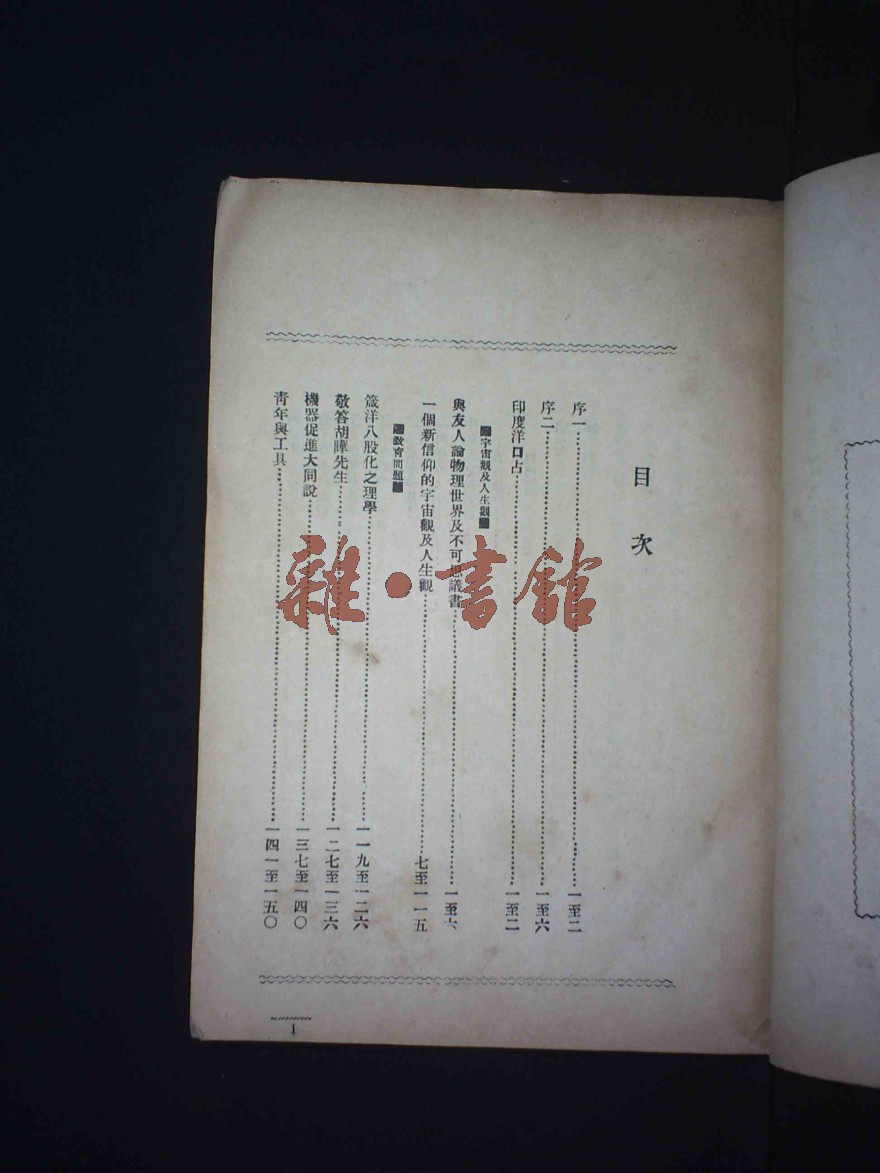 目次
序一……一至二
序二……一至六
印度洋口占……一至二
宇宙觀及人生觀
與友人論物理世界及不可思議書……一至六
一個新信仰的宇宙觀及人生觀……七至一一五
教育問題
箴洋八股化之理學……一一九至一二六
敬答胡曄先生……一二七至一三六
機器促進大同說……一三七至一四〇
青年與工具……一四一至一五〇
1
雜·書館